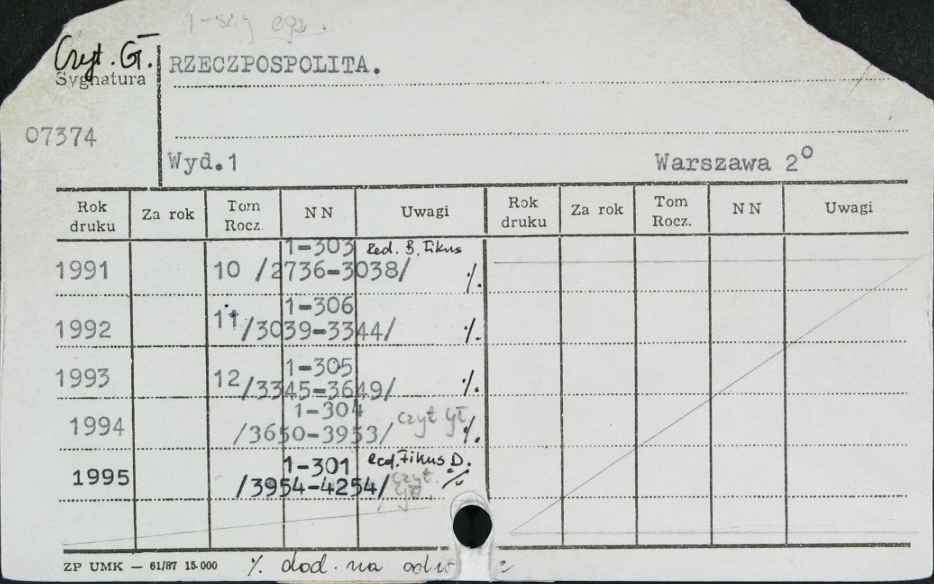 1-szy egz.
Czyt. Gł.
Sygnatura
RZECZPOSPOLITA.
07374
Wyd.1 Warszawa 2°
Rok druku Za rok Tom Rocz. NN Uwagi Rok druku Za rok Tom Rocz. NN Uwagi
1-303 Red. B. Fikus
1991 10 /2736-3038/ ./.
1-306
1992 11 /3039-3344/ ./.
1-305
1993 12 /3345-3649/ ./.
1-304 czyt gł
1994 /3650-3953/ ./.
1-301 red. Fikus D.
1995 /3954-4254/ czyt. gł. ./.
ZP UMK — 61/87 15.000 ./. dod. na